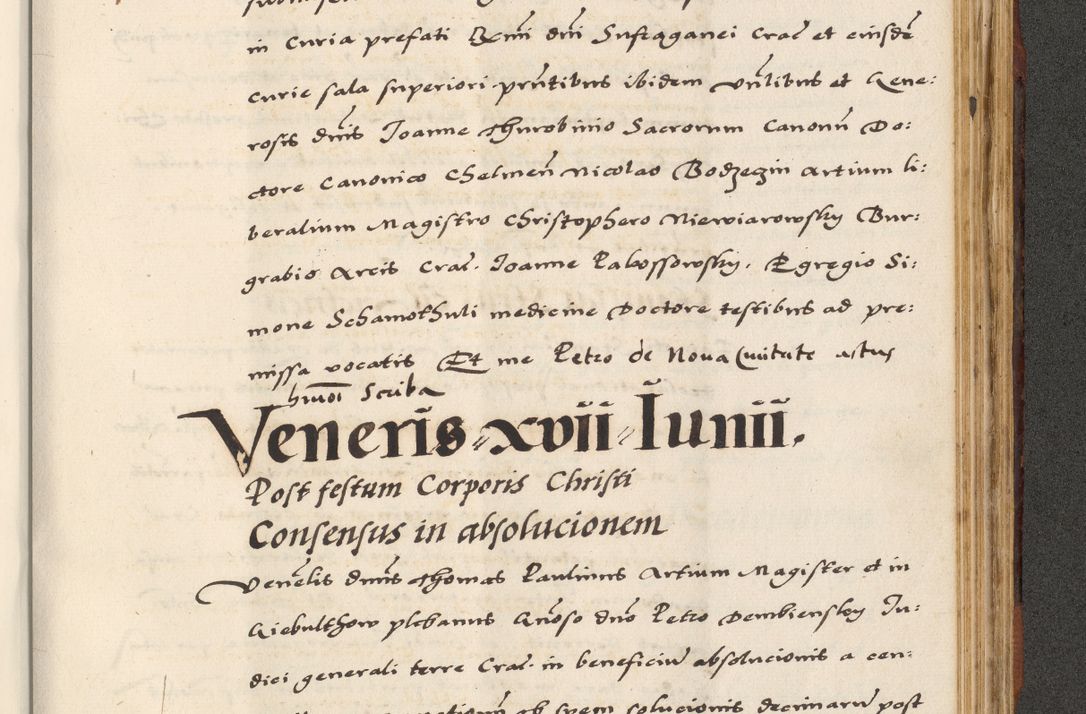 in Curia prefati Rmi dni Suffraganei Crac et eiusde
curie sala superiori prntibus ibidem vnlibus et Gene:
rosis dnis Joanne Thurobinio Sacrorum Canonu Do:
ctore Canonico Chelmen Nicolao Bodzegin Artium li:
beralium Magistro Christophero Niewiarowsky Bur:
grabio Arcis Crac. Joanne Palvossowsky, Egregio Si:
mone Schamothuli medicine Doctore testibus ad pre:
missa vocatis Et me Petro de Nova Civitate actus
hmoi Scriba
Veneris xvii Iunii.
Post festum Corporis Christi
Consensus in absolucionem
Venelis dnus Thomas Paulinus Artium Magister et in
Giebulthow plebanus Gnoso dno Petro Dembiensky Ju:
dici generali terre Crac. in beneficiu absolucionis a cen:
ab spem solucionis decimaru post